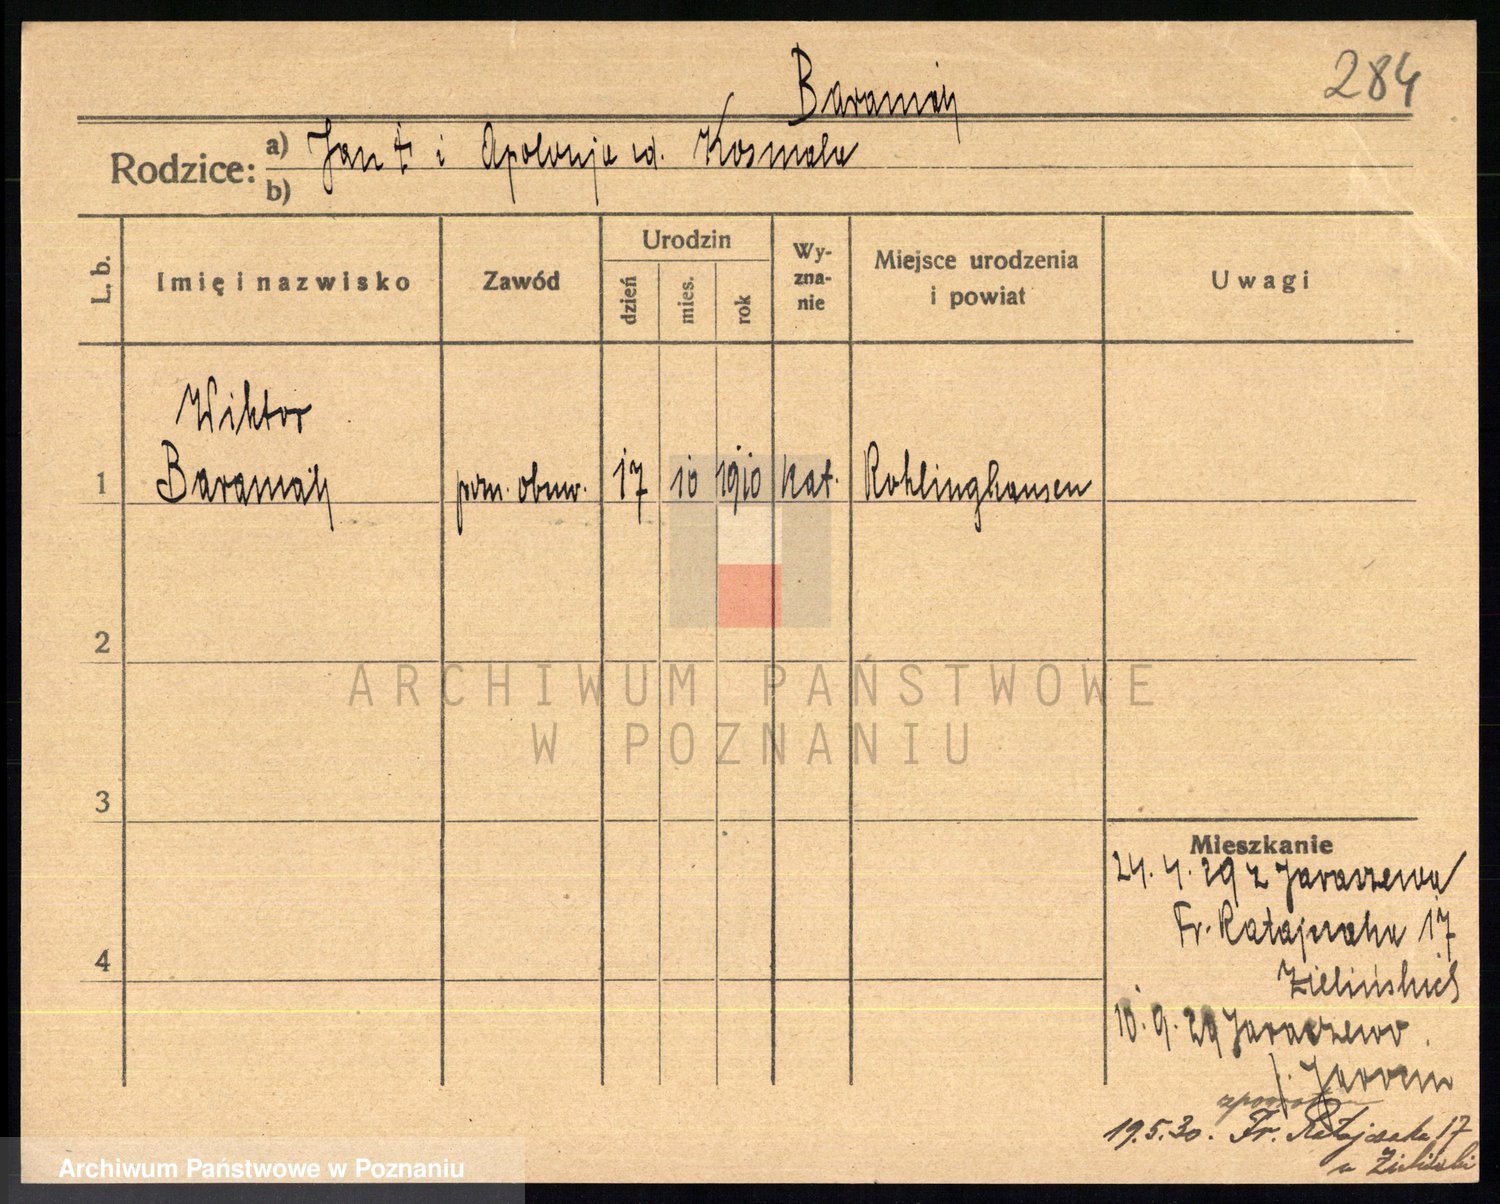 284
Baraniak
Rodzice: a) Jan † i Apolonja ud. Kosmala
b)
L. b.
Imię i nazwisko
Zawód
Urodzin
dzień
mies.
rok
Wy-
zna-
nie
Miejsce urodzenia
i powiat
Uwagi
Wiktor
1 Baraniak pom. obuw. 17 10 1910 kat. Rohlinghausen
2
3
4
Mieszkanie
24. 4. 29 z Jaraczewa
Fr. Ratajczaka 17
Zielińskich
10. 9. 29 Jaraczewo.
19.5.30. Fr. Ratajczaka 17
u Zieliński
ARCHIWUM PAŃSTWOWE
W POZNANIU
Archiwum Państwowe w Poznaniu